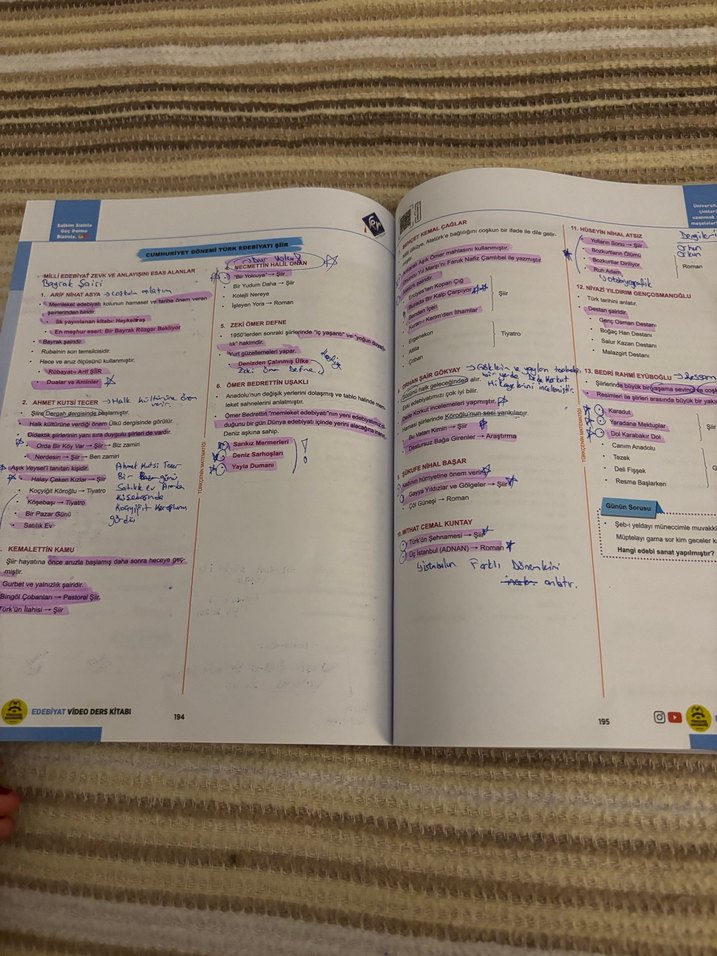 Kalbim Sizinle
Geç Derme
Bizimle.
CUMHURİYET DÖNEMİ TÜRK EDEBİYATI ŞİİR
MİLLİ EDEBİYAT ZEVK VE ANLAYIŞINI ESAS ALANLAR
Bayrak Şairi
1. ARİF NİHAT ASYA → coşkulu anlatım
Memleket edebiyatı kolunun hamaset ve tarihe önem veren
şairlerinden biridir.
İlk yayınlanan kitabı: Heykeltraş
En meşhur eseri: Bir Bayrak Rüzgar Bekliyor
Bayrak şairidir.
Rubainin son temsilcisidir.
Hece ve aruz ölçüsünü kullanmıştır.
Rübayat-ı Arif Şiir
Dualar ve Aminler
2. AHMET KUTSİ TECER → Halk kültürüne önem
verir.
Şiire Dergah dergisinde başlamıştır.
Halk kültürüne verdiği önem Ülkü dergisinde görülür.
Didaktik şiirlerinin yanı sıra duygulu şiirleri de vardır.
Orda Bir Köy Var → Şiir → Biz zamiri
Nerdesin → Şiir → Ben zamiri
Aşık Veysel'i tanıtan kişidir.
Halay Çeken Kızlar → Şiir
Koçyiğit Köroğlu → Tiyatro
Köşebaşı → Tiyatro
Bir Pazar Günü
Satılık Ev
Ahmet Kutsi Tecer
Bir Pazar günü
Satılık Ev Aradı
Köşebaşında
Koçyiğit Köroğlunu
gördü
KEMALETTİN KAMU
Şiir hayatına önce aruzla başlamış daha sonra heceye geç-
miştir.
Gurbet ve yalnızlık şairidir.
Bingöl Çobanları → Pastoral Şiir
Türk'ün İlahisi → Şiir
EDEBİYAT VİDEO DERS KİTABI
194
Dur Yolcu
NECMETTİN HALİL ONAN
Bir Yolcuya → Şiir
Bir Yudum Daha → Şiir
Kolejli Nereye
İşleyen Yara → Roman
5. ZEKİ ÖMER DEFNE
1950'lerden sonraki şiirlerinde "iç yaşantı" ve "yoğun duyarlı-
lık" hakimdir.
Yurt güzellemeleri yapar.
Denizden Çalınmış Ülke
Zeki Ömer Defne
6. ÖMER BEDRETTİN UŞAKLI
Anadolu'nun değişik yerlerini dolaşmış ve tablo halinde mem-
leket sahnelerini anlatmıştır.
Ömer Bedrettin "memleket edebiyatı"nın yeni edebiyatımızda
Deniz aşkına sahip.
Sarıkız Mermerleri
Deniz Sarhoşları
Yayla Dumanı
TÜRKÇENİN MATEMATİĞİ
BEHÇET KEMAL ÇAĞLAR
Atatürk'e bağlılığını coşkun bir ifade ile dile getir-
Ankaralı Aşık Ömer mahlasını kullanmıştır.
Onuncu Yıl Marşı'nı Faruk Nafiz Çamlıbel ile yazmıştır.
Erciyes'ten Kopan Çığ
Burada Bir Kalp Çarpıyor
Benden İçeri
Kuran-ı Kerim'den İlhamlar
Şiir
Ergenekon
Attila
Çoban
Tiyatro
ORHAN ŞAİK GÖKYAY
Gücünü halk geleneğinden alır.
Eski edebiyatımızı çok iyi bilir.
Dede Korkut incelemeleri yapmıştır.
Köroğlu'nun sesi yankılanır.
Bu Vatan Kimin → Şiir
Destursuz Bağa Girenler → Araştırma
ŞÜKUFE NİHAL BAŞAR
Kadının hürriyetine önem verir.
Gayya Yıldızlar ve Gölgeler → Şiir
Çöl Güneşi → Roman
10. MİTHAT CEMAL KUNTAY
Türk'ün Şehnamesi → Şiir
Üç İstanbul (ADNAN) → Roman
İstanbulun Farklı Dönemlerini
anlatır.
11. HÜSEYİN NİHAL ATSIZ
Yolların Sonu → Şiir
Bozkurtların Ölümü
Bozkurtlar Diriliyor
Ruh Adam
Roman
Otobiyografik
12. NİYAZİ YILDIRIM GENÇOSMANOĞLU
Türk tarihini anlatır.
Destan şairidir.
Genç Osman Destanı
Boğaç Han Destanı
Salur Kazan Destanı
Malazgirt Destanı
13. BEDRİ RAHMİ EYÜBOĞLU → ressam
Şiirlerinde büyük bir yaşama sevinci ve coşku
Resimleri ile şiirleri arasında büyük bir yakı
Karadut
Yaradana Mektuplar
Dol Karabakır Dol
Canım Anadolu
Tezek
Deli Fişşek
Resme Başlarken
Günün Sorusu
Şeb-i yeldayı müneccimle muvakki
Müptelayı gama sor kim geceler k
Hangi edebi sanat yapılmıştır?
TÜRKÇENİN MATEMATİĞİ
195